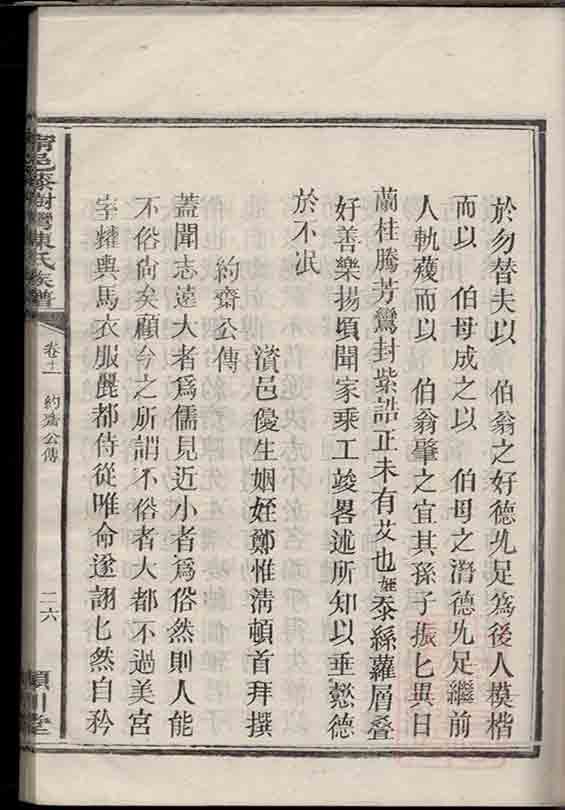 於勿替夫以　伯翁之好德旣足爲後人模楷
而以　伯母成之以　伯母之潛德旣足繼前
人軌䕶而以　伯翁肇之宜其孫子振匕異日
蘭桂騰芳鸞封紫誥正未有艾也姪忝絲蘿層叠
好善樂揚頃聞家乘工竣畧述所知以垂懿德
於不泯
濱邑優生姻姪鄭惟淸頓首拜撰
約齋公傳
蓋聞志遠大者爲儒見近小者爲俗然則人能
不俗尙矣顧今之所謂不俗者人大都不過美宮
室耀輿馬衣服麗都侍從唯命遂詡匕然自矜
邑桑樹灣陳氏族譜
卷十一
約齋公傳
二六
潁川堂